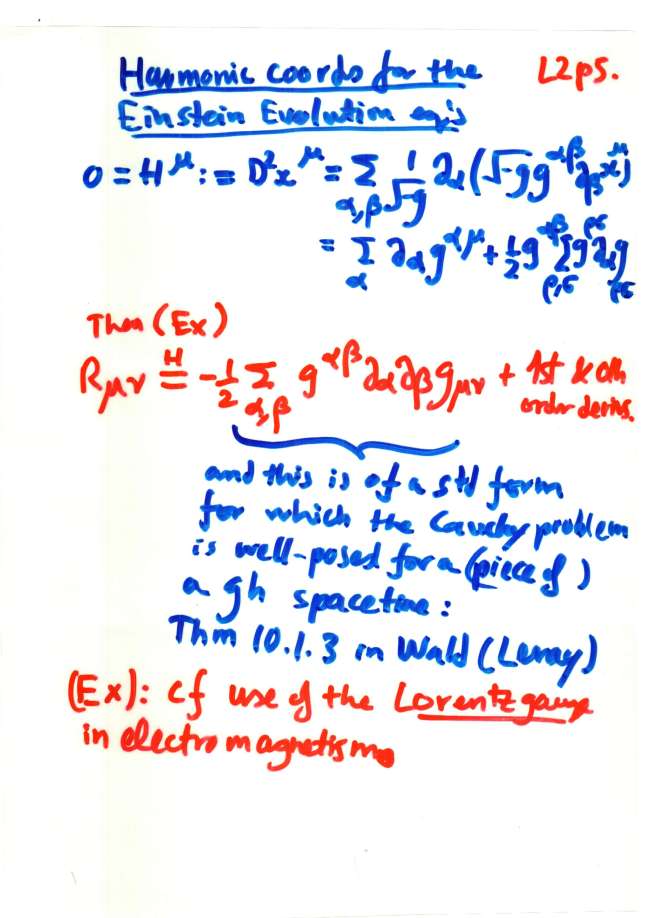 Harmonic coords for the L2p5.
Einstein Evolution eq's
0 = H^μ := D²x^μ = Σ_{α,β} 1/√-g ∂_α(√-g g^{αβ} ∂_β x^μ)
= Σ_α ∂_α g^{αμ} + ½ g^{αβ} Σ_{ρ,σ} g^{ρσ} ∂_α g_{ρσ}
Then (Ex)
R_{μν} =^H -½ Σ_{α,β} g^{αβ} ∂_α ∂_β g_{μν} + 1st & 0th
order derivs.
and this is of a std form
for which the Cauchy problem
is well-posed for a (piece of)
a gh spacetime:
Thm 10.1.3 in Wald (Leray)
(Ex): cf use of the Lorentz gauge
in electromagnetism.